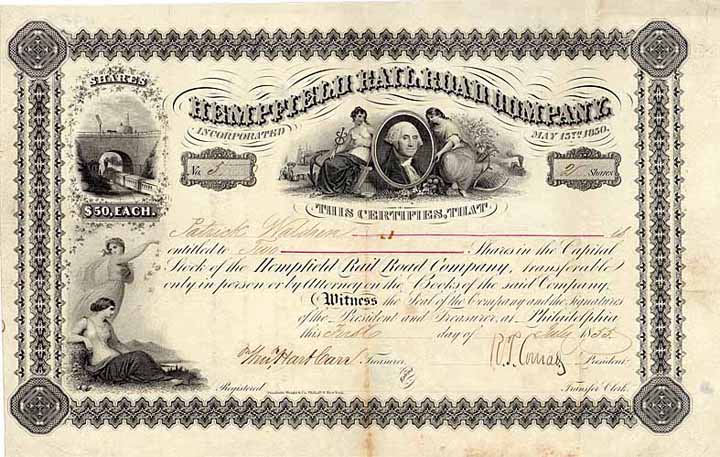 SHARES
$50, EACH.
HEMPFIELD RAIL ROAD COMPANY,
INCORPORATED MAY 15TH 1850.
No. 3
2 Shares
THIS CERTIFIES, THAT
Patrick is
entitled to Two Shares in the Capital
Stock of the Hempfield Rail Road Company, transferable
only in person or by Attorney on the Books of the said Company.
Witness the Seal of the Company and the signatures
of the President and Treasurer, at Philadelphia
this First day of July 1855.
Treasurer. President.
Registered Transfer Clerk.